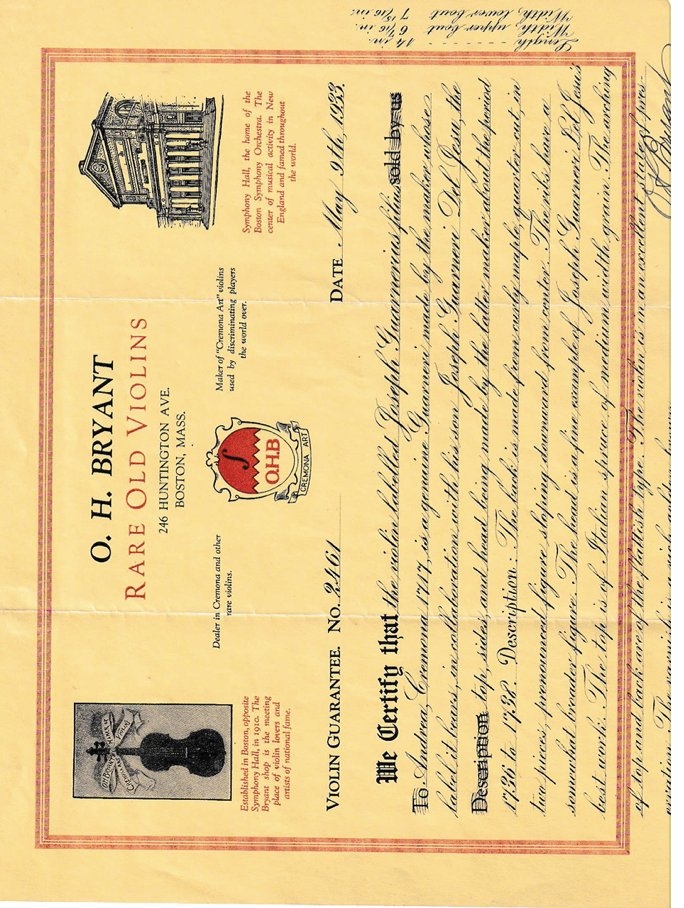 O. H. BRYANT
RARE OLD VIOLINS
246 HUNTINGTON AVE.
BOSTON, MASS.
Established in Boston, opposite
Symphony Hall, in 1910. The
Bryant shop is the meeting
place of violin lovers and
artists of national fame.
Dealer in Cremona and other
rare violins.
O.H.B
CREMONA ART
Maker of "Cremona Art" violins
used by discriminating players
the world over.
Symphony Hall, the home of the
Boston Symphony Orchestra. The
center of musical activity in New
England and famed throughout
the world.
VIOLIN GUARANTEE. No. 2161 DATE May 9th, 1933.
We Certify that the violin labelled Joseph Guarnerius filius sold by us
To Andrea, Cremona 1717, is a genuine Guarneri made by the maker whose
label it bears, in collaboration with his son Joseph Guarneri Del Jesu, the
Description top, sides, and head being made by the latter maker about the period
1736 to 1738. Description: The back is made from curly maple, quarter cut, in
two pieces, pronounced figure sloping downward from center. The ribs have a
somewhat broader figure. The head is a fine example of Joseph Guarneri Del Jesu's
best work. The top is of Italian spruce of medium width grain. The arching
of top and back are of the flattish type. The violin is in an excellent state of pres-
ervation. The varnish is a rich golden brown
O H Bryant
Length 14 in.
Width, upper bout 6 in.
Width, lower bout 7 15/16 in.